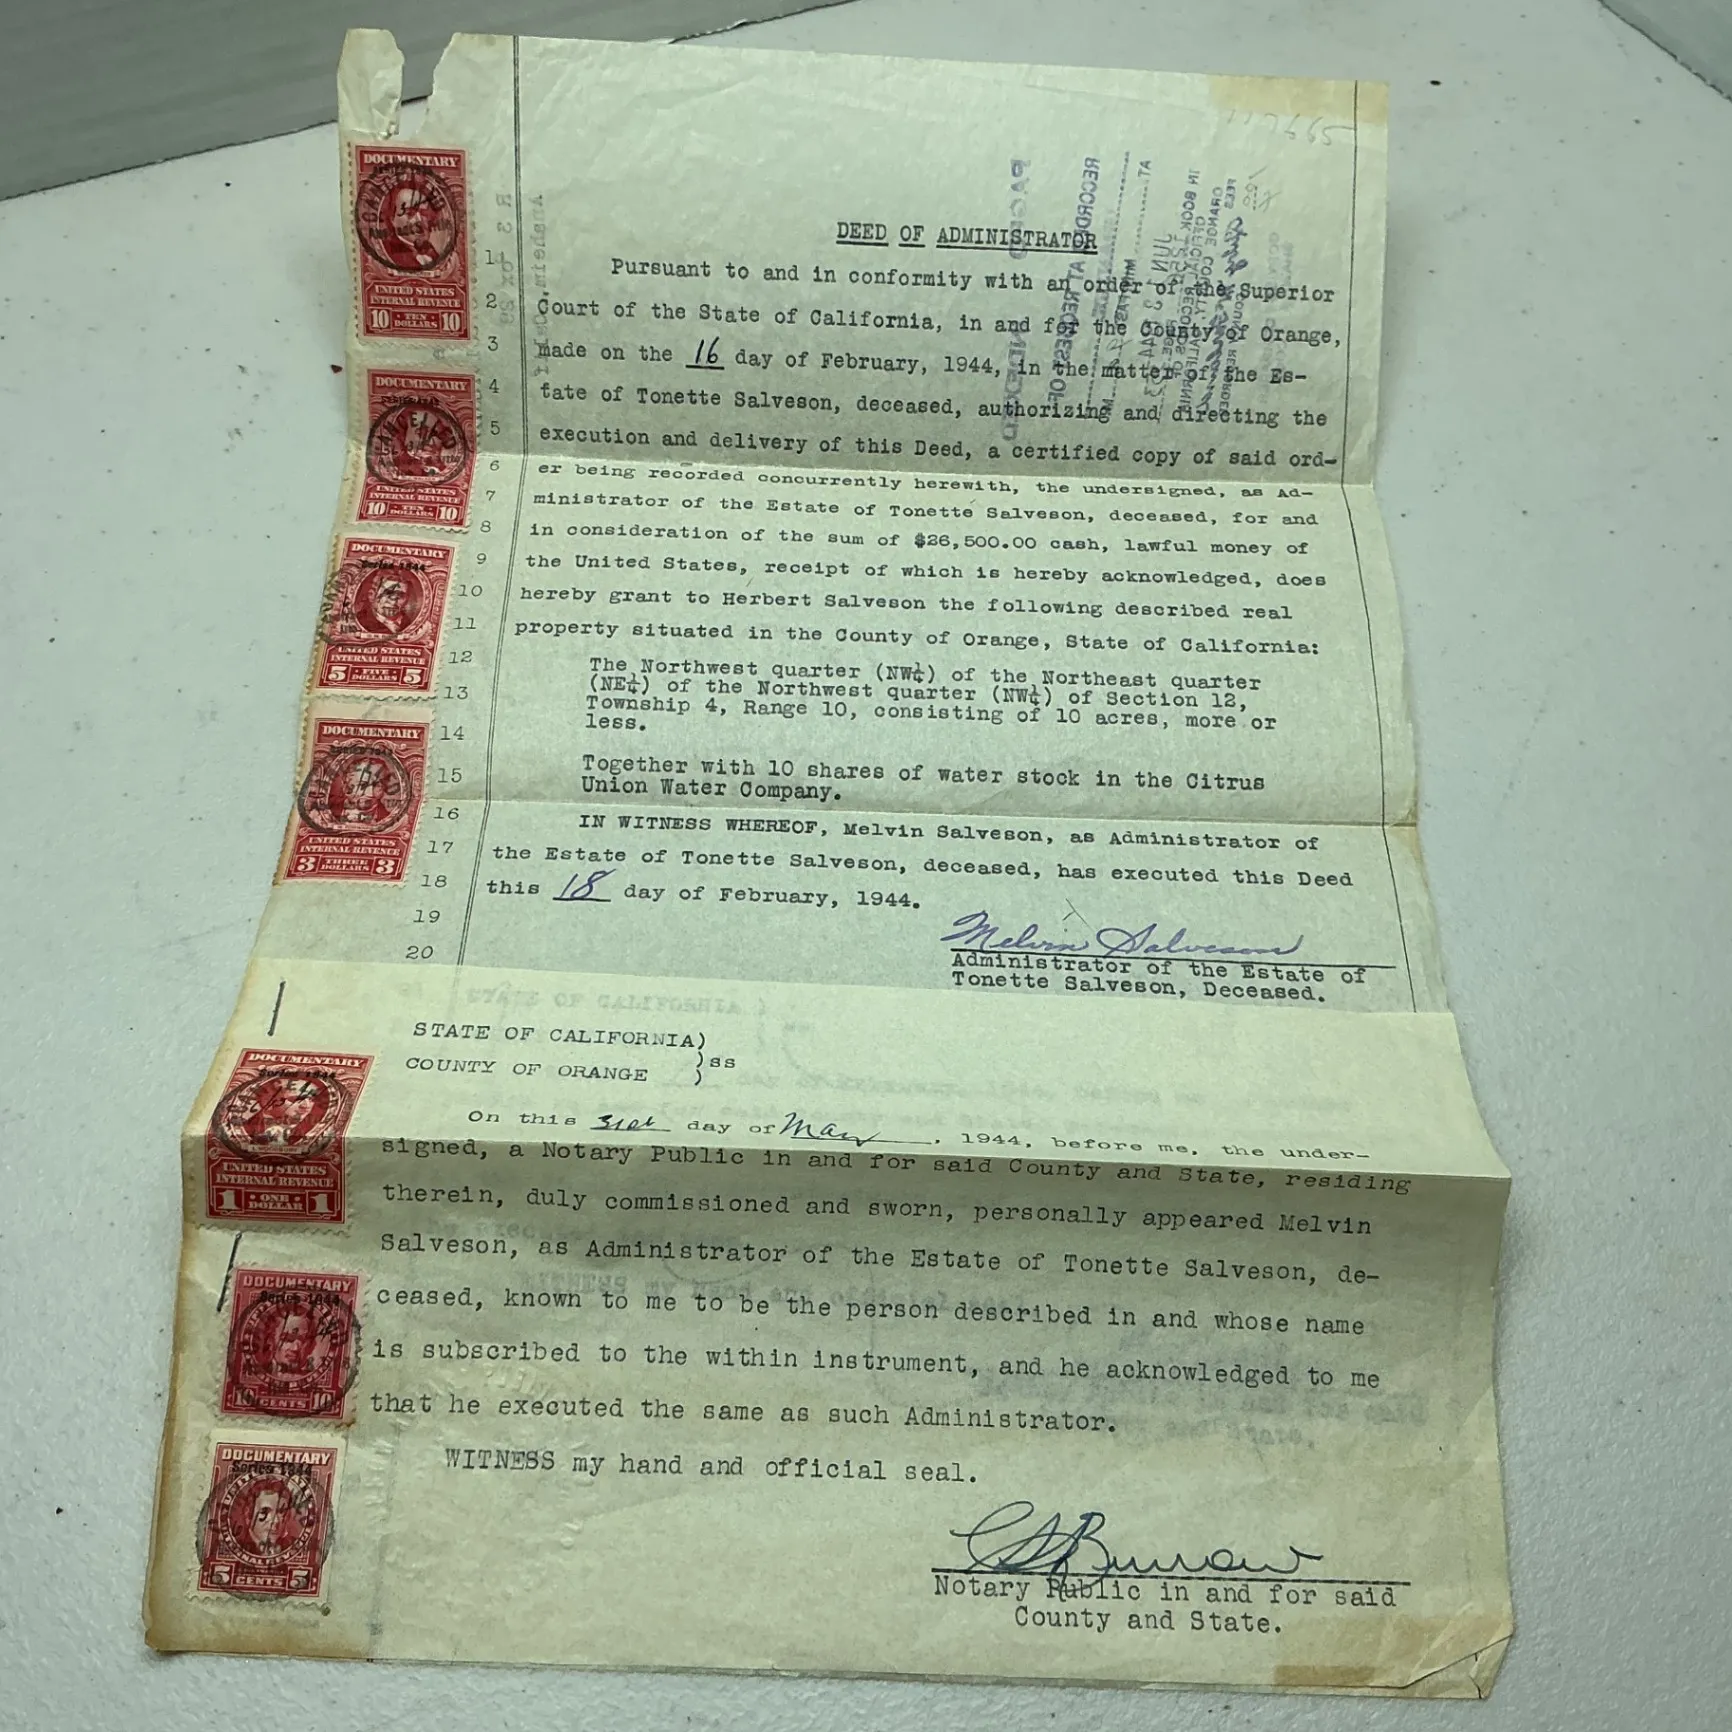 DEED OF ADMINISTRATOR
1
Pursuant to and in conformity with an order of the Superior
2
Court of the State of California, in and for the County of Orange,
3
made on the 16 day of February, 1944, in the matter of the Es-
4
tate of Tonette Salveson, deceased, authorizing and directing the
5
execution and delivery of this Deed, a certified copy of said ord-
6
er being recorded concurrently herewith, the undersigned, as Ad-
7
ministrator of the Estate of Tonette Salveson, deceased, for and
8
in consideration of the sum of $26,500.00 cash, lawful money of
9
the United States, receipt of which is hereby acknowledged, does
10
hereby grant to Herbert Salveson the following described real
11
property situated in the County of Orange, State of California:
12
The Northwest quarter (NW¼) of the Northeast quarter
(NE¼) of the Northwest quarter (NW¼) of Section 12,
13
Township 4, Range 10, consisting of 10 acres, more or
less.
14
15
Together with 10 shares of water stock in the Citrus
Union Water Company.
16
IN WITNESS WHEREOF, Melvin Salveson, as Administrator of
17
the Estate of Tonette Salveson, deceased, has executed this Deed
18
this 18 day of February, 1944.
19
Melvin Salveson
20
Administrator of the Estate of
Tonette Salveson, Deceased.
STATE OF CALIFORNIA)
)ss
COUNTY OF ORANGE )
On this 31st day of May, 1944, before me, the under-
signed, a Notary Public in and for said County and State, residing
therein, duly commissioned and sworn, personally appeared Melvin
Salveson, as Administrator of the Estate of Tonette Salveson, de-
ceased, known to me to be the person described in and whose name
is subscribed to the within instrument, and he acknowledged to me
that he executed the same as such Administrator.
WITNESS my hand and official seal.
Notary Public in and for said
County and State.
DOCUMENTARY
CANCELLED
UNITED STATES
INTERNAL REVENUE
10 TEN DOLLARS 10
DOCUMENTARY
CANCELLED
UNITED STATES
INTERNAL REVENUE
10 TEN DOLLARS 10
DOCUMENTARY
Series 1944
UNITED STATES
INTERNAL REVENUE
5 FIVE DOLLARS 5
DOCUMENTARY
Series 1944
CANCELLED
UNITED STATES
INTERNAL REVENUE
3 THREE DOLLARS 3
DOCUMENTARY
Series 1944
CANCELLED
UNITED STATES
INTERNAL REVENUE
1 ONE DOLLAR 1
DOCUMENTARY
Series 1944
10 CENTS 10
DOCUMENTARY
Series 1944
5 CENTS 5